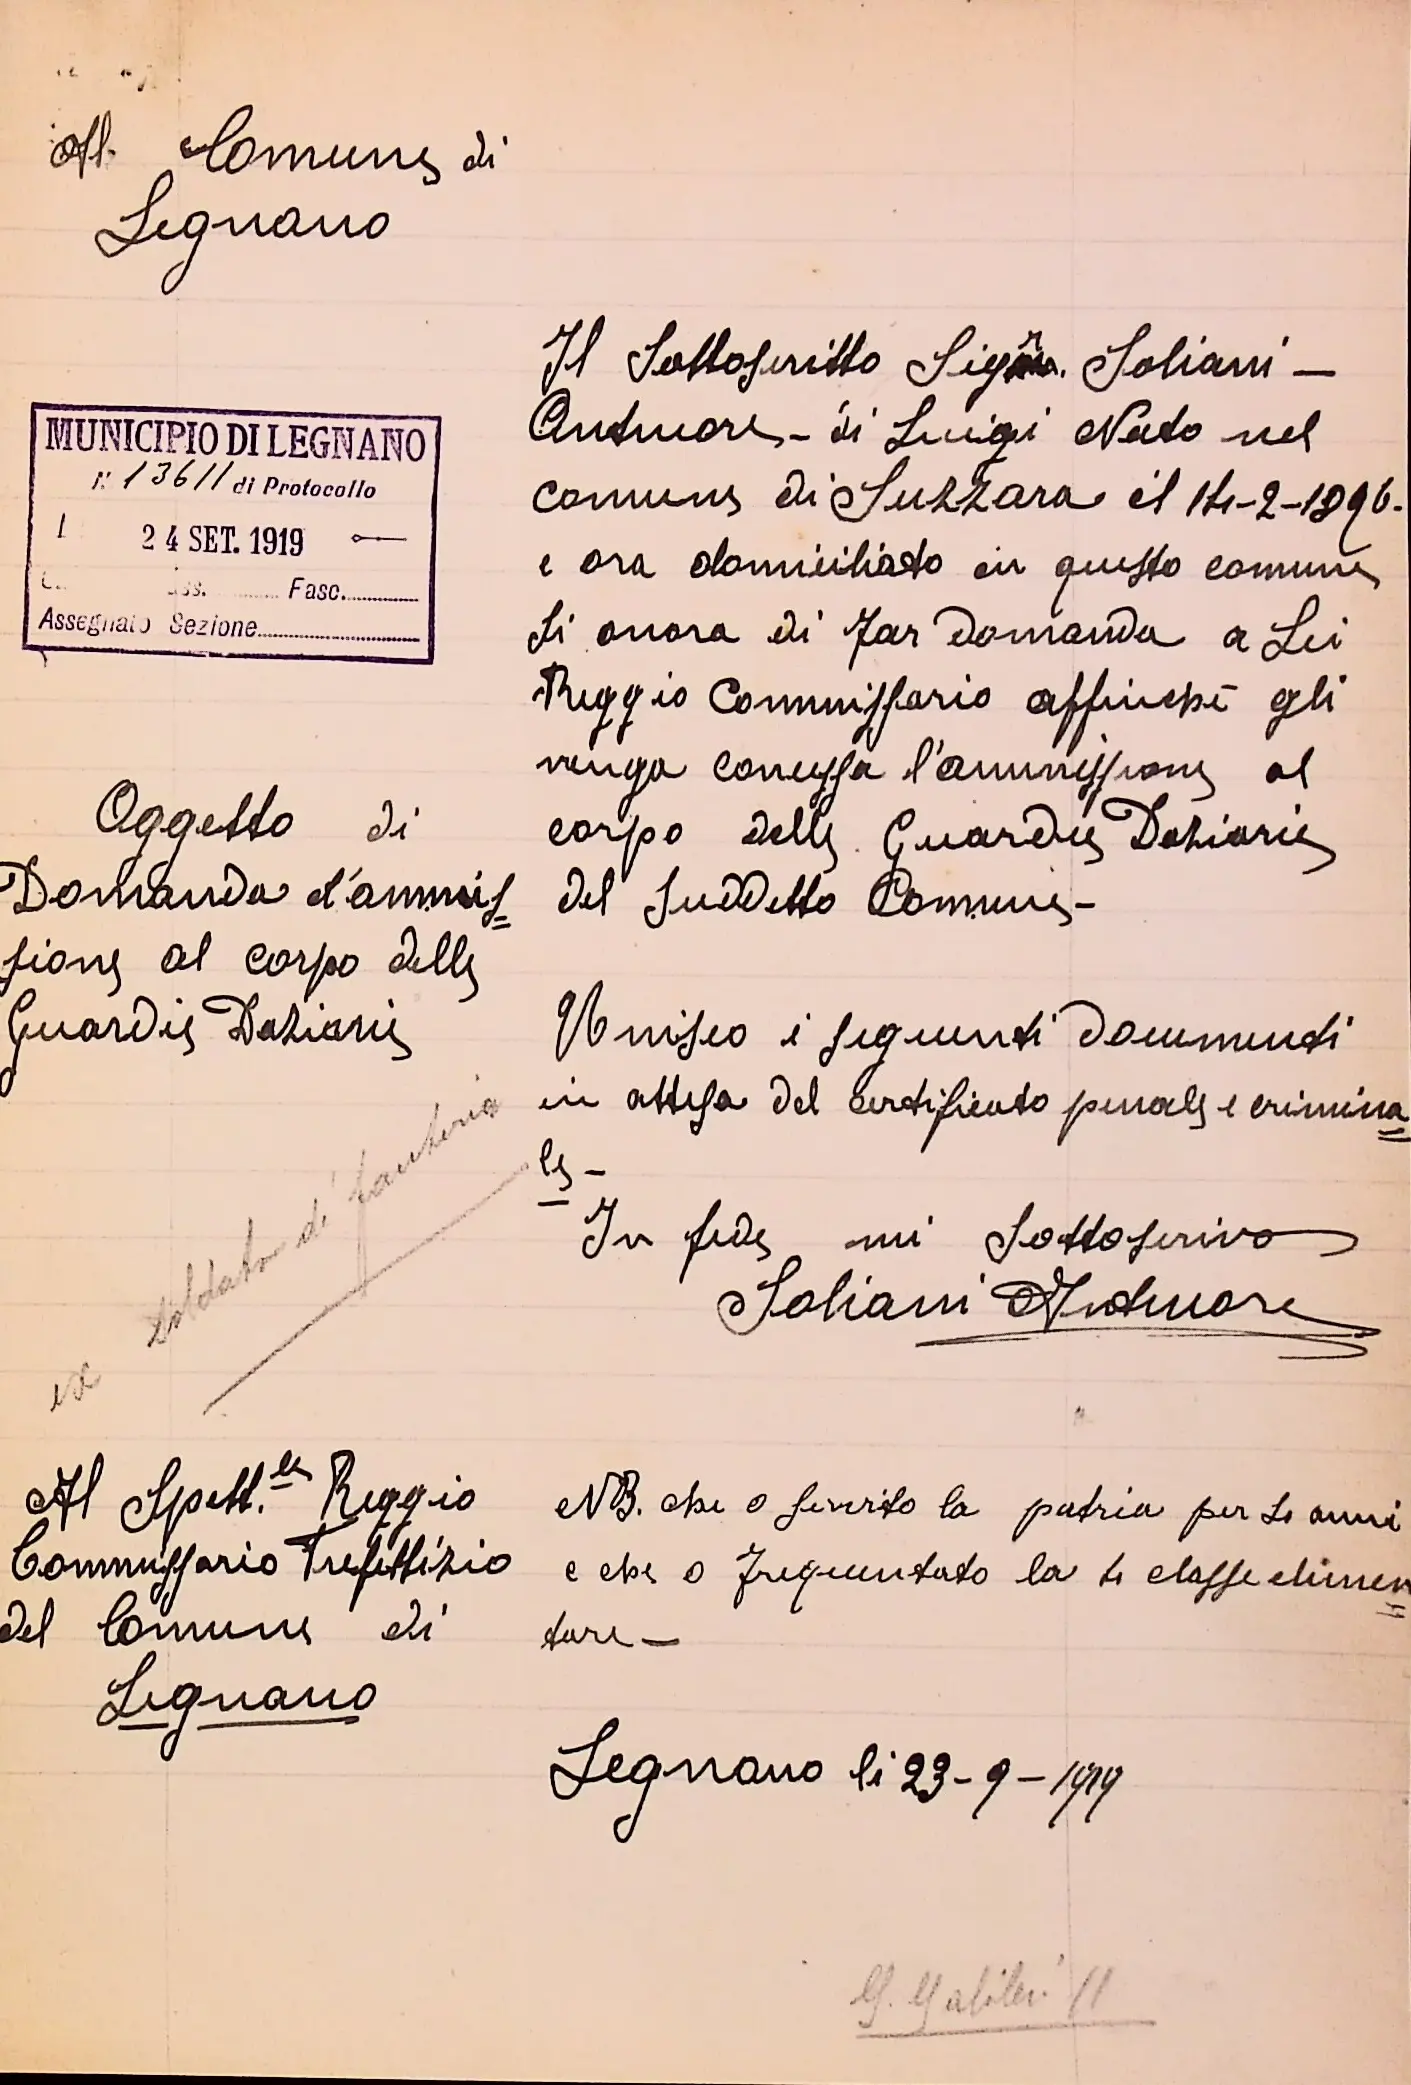 Al Comune di
Legnano
MUNICIPIO DI LEGNANO
N. 13611 di Protocollo
24 SET. 1919
Fasc.
Assegnato Sezione
Oggetto di
Domanda d'ammis=
sione al corpo delle
Guardie Daziarie
ex Soldato di fanteria
Al Spett.le Reggio
Commissario Prefettizio
del Comune di
Legnano
Il Sottoscritto Sigr. Soliani -
Antenore - di Luigi Nato nel
comune di Suzzara il 14-2-1896.
e ora domiciliato in questo comune
si onora di far Domanda a Lei
Reggio Commissario affinchè gli
venga concessa l'ammissione al
corpo delle Guardie Daziarie
del suddetto Comune -
Unisco i seguenti documenti
in attesa del certificato penale e crimina=
le -
In fede mi sottoscrivo
Soliani Antenore
NB. che o servito la patria per 4 anni
e che o frequentato la 4 classe elimen=
tare -
Legnano li 23-9-1919
G. Galilei 11